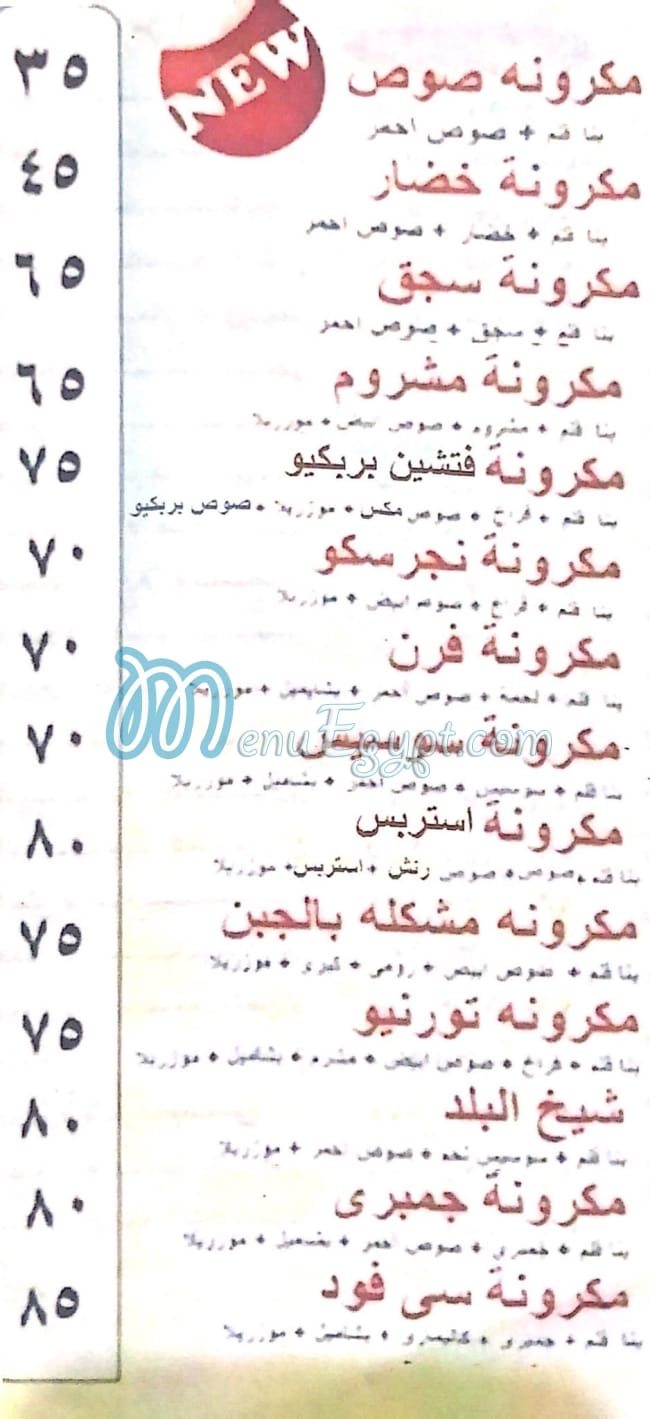 NEW
مكرونه صوص ٣٥
بنا قلم + صوص احمر
مكرونة خضار ٤٥
بنا قلم + خضار + صوص احمر
مكرونة سجق ٦٥
بنا قلم + سجق + صوص احمر
مكرونة مشروم ٦٥
بنا قلم + مشروم + صوص ابيض + موزريلا
مكرونة فتشين بربكيو ٧٥
بنا قلم + فراخ + صوص مكس + موزريلا + صوص بربكيو
مكرونة نجرسكو ٧٠
بنا قلم + فراخ + صوص ابيض + موزريلا
مكرونة فرن ٧٠
بنا قلم + لحمة + صوص احمر + بشاميل + موزريلا
مكرونة سوسيس ٧٠
MenuEgypt.com
بنا قلم + سوسيس + صوص احمر + بشاميل + موزريلا
مكرونة استربس ٨٠
بنا قلم + صوص + صوص رنش + استربس + موزريلا
مكرونه مشكله بالجبن ٧٥
بنا قلم + صوص ابيض + رومى + كيرى + موزريلا
مكرونه تورنيو ٧٥
بنا قلم + فراخ + صوص ابيض + مشرم + بشاميل + موزريلا
شيخ البلد ٨٠
بنا قلم + سوسيس لحم + صوص احمر + موزريلا
مكرونة جمبرى ٨٠
بنا قلم + جمبرى + صوص احمر + بشاميل + موزريلا
مكرونة سى فود ٨٥
بنا قلم + جمبرى + كاليمارى + بشاميل + موزريلا